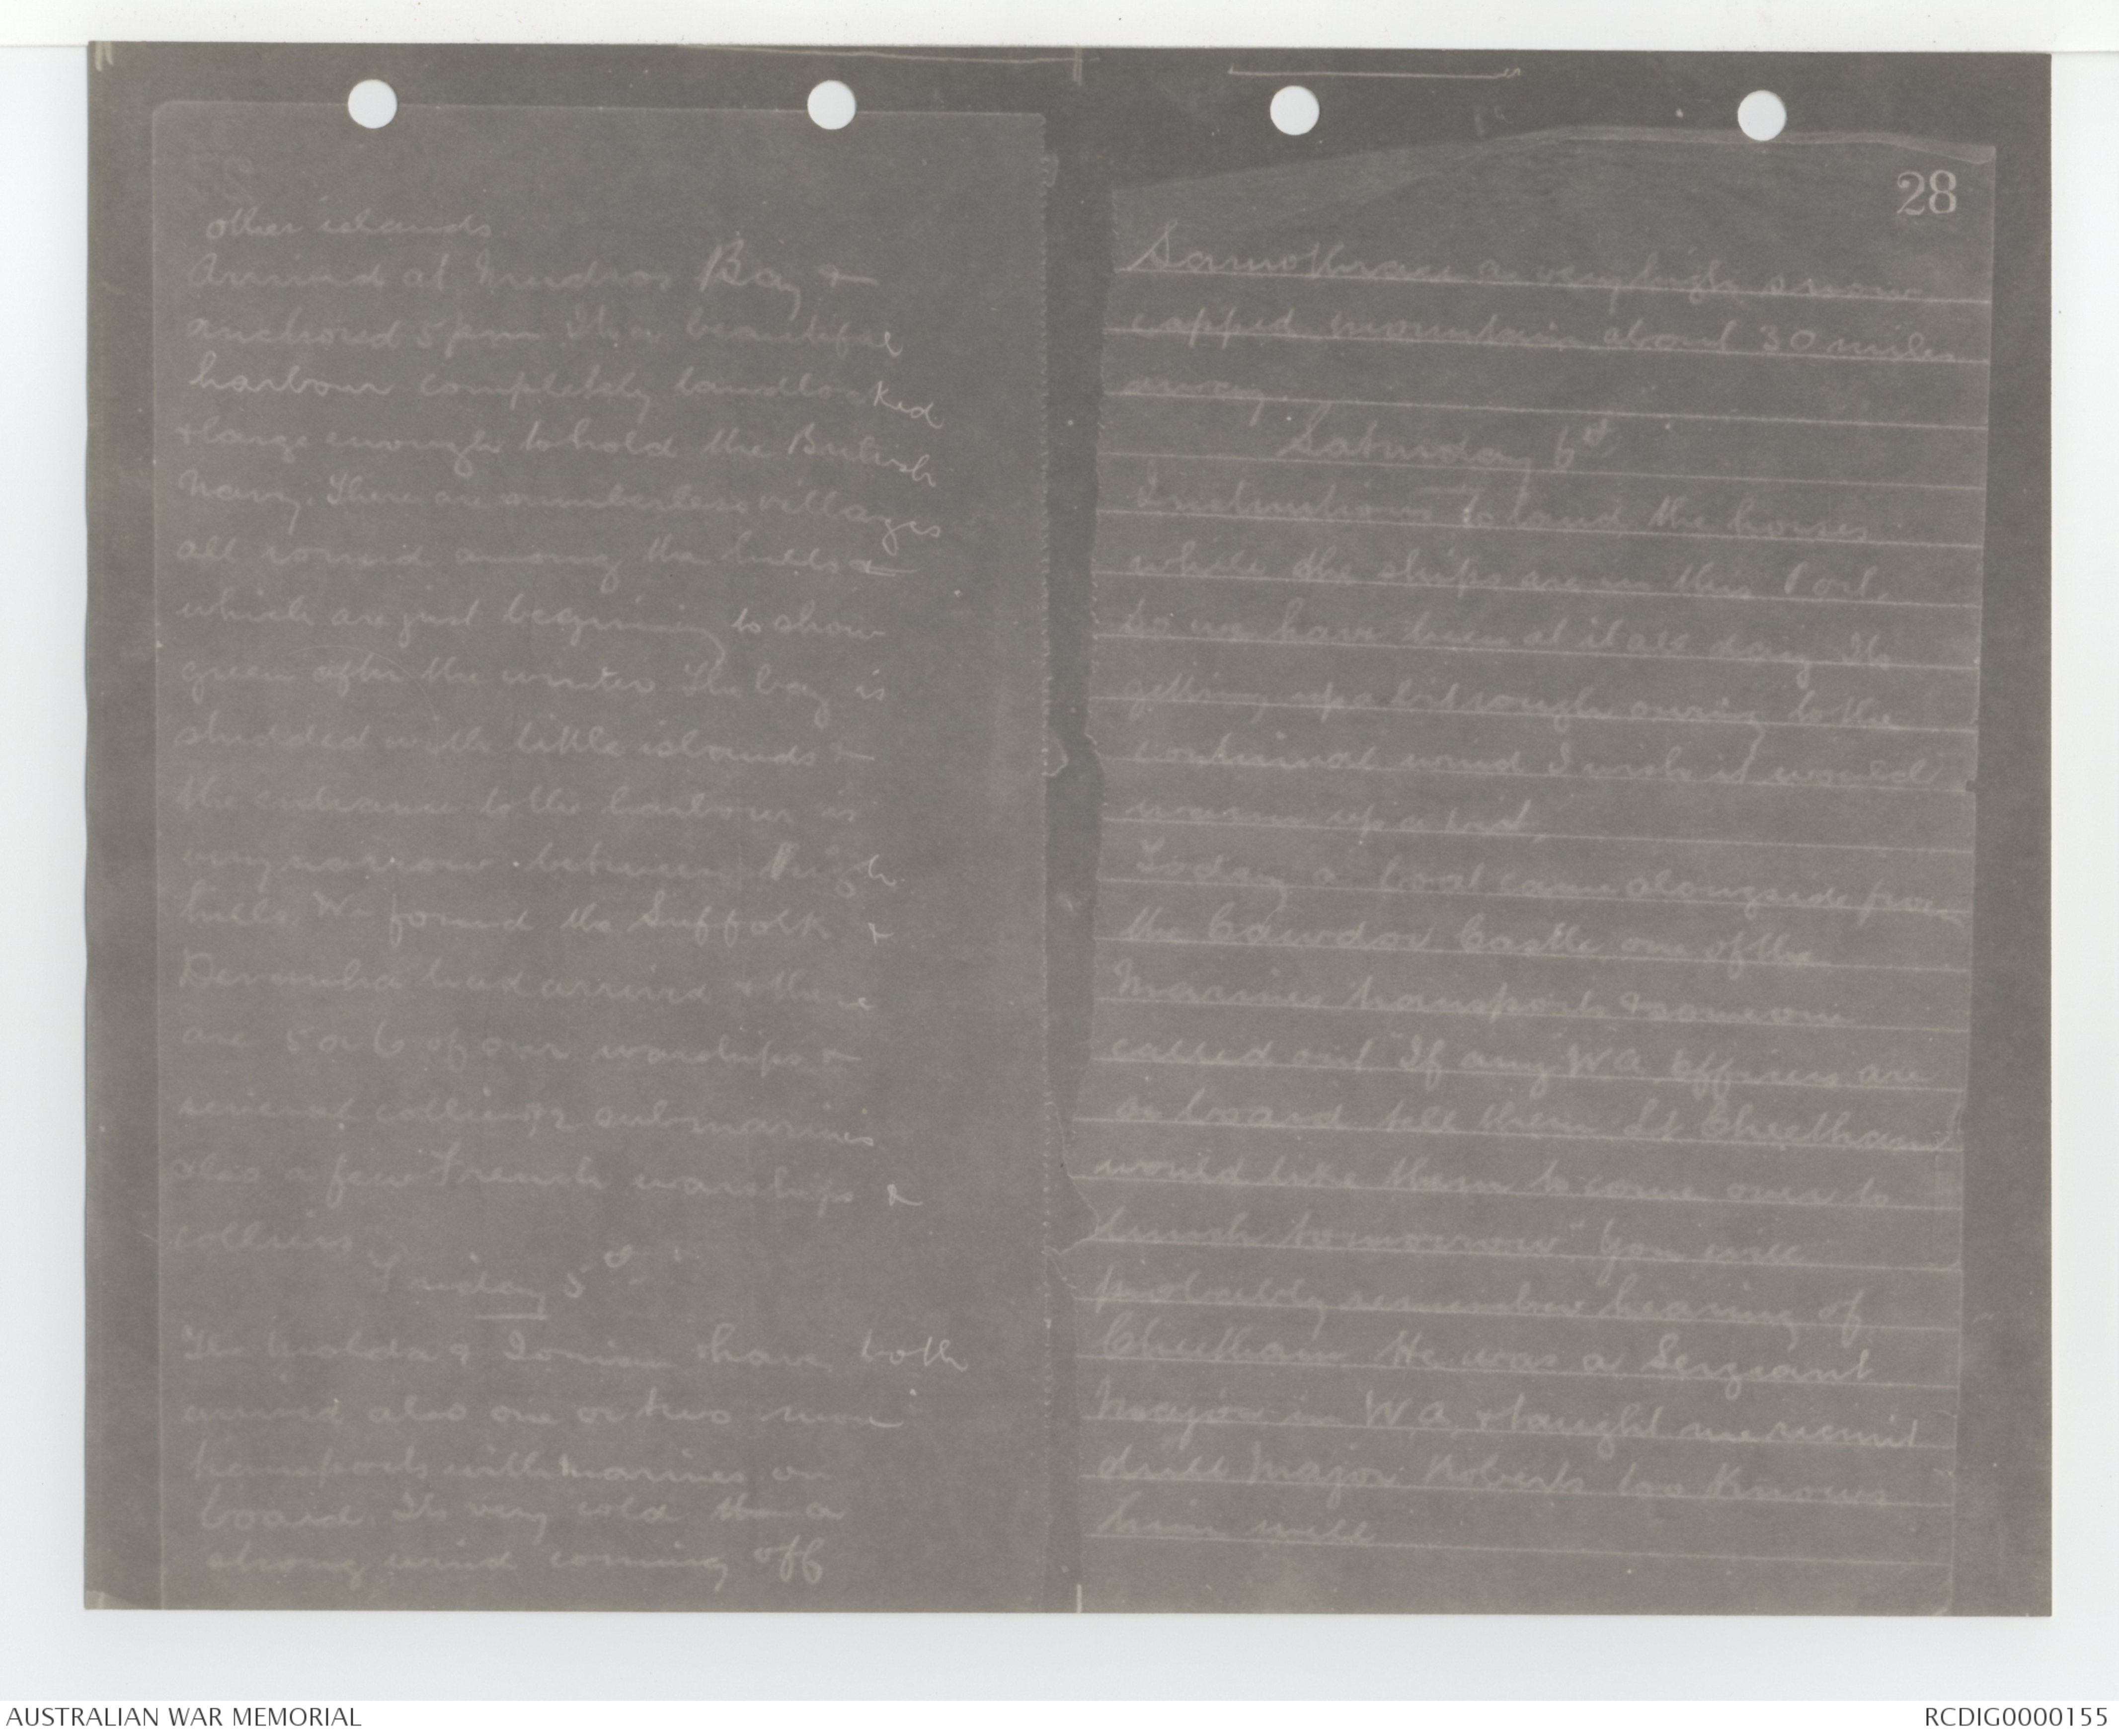 other islands
Arrived at Mudros Bay &
anchored 5 pm Its a beautiful
harbour completely landlocked
& large enough to hold the British
Navy. There are numberless villages
all round among the hills &
which are just beginning to show
green after the winter The bay is
studded with little islands &
the entrance to the harbour is
very narrow between high
hills. We found the Suffolk &
Devanha had arrived & there
are 5 or 6 of our warships &
several colliers & 2 submarines
also a few French warships &
colliers
Friday 5th
The Malda & Ionian have both
arrived also one or two more
transports with Marines on
board. Its very cold a
strong wind coming off
28
Samothrace a very high snow
capped mountain about 30 miles
away
Saturday 6th
Instructions to land the horses
while the ships are in this Port.
So we have been at it all day Its
getting up a bit rough owing to the
continual wind I wish it would
warm up a bit.
Today a boat came alongside from
the Cawdor Castle one of the
Marines transports & someone
called out "If any WA Officers are
on board tell them Lt Cheetham
would like them to come over to
lunch tomorrow" You will
probably remember hearing of
Cheetham He was a Sergeant
Major in W.A. & taught me recruit
drill Major Roberts too knows
him well
AUSTRALIAN WAR MEMORIAL
RCDIG0000155